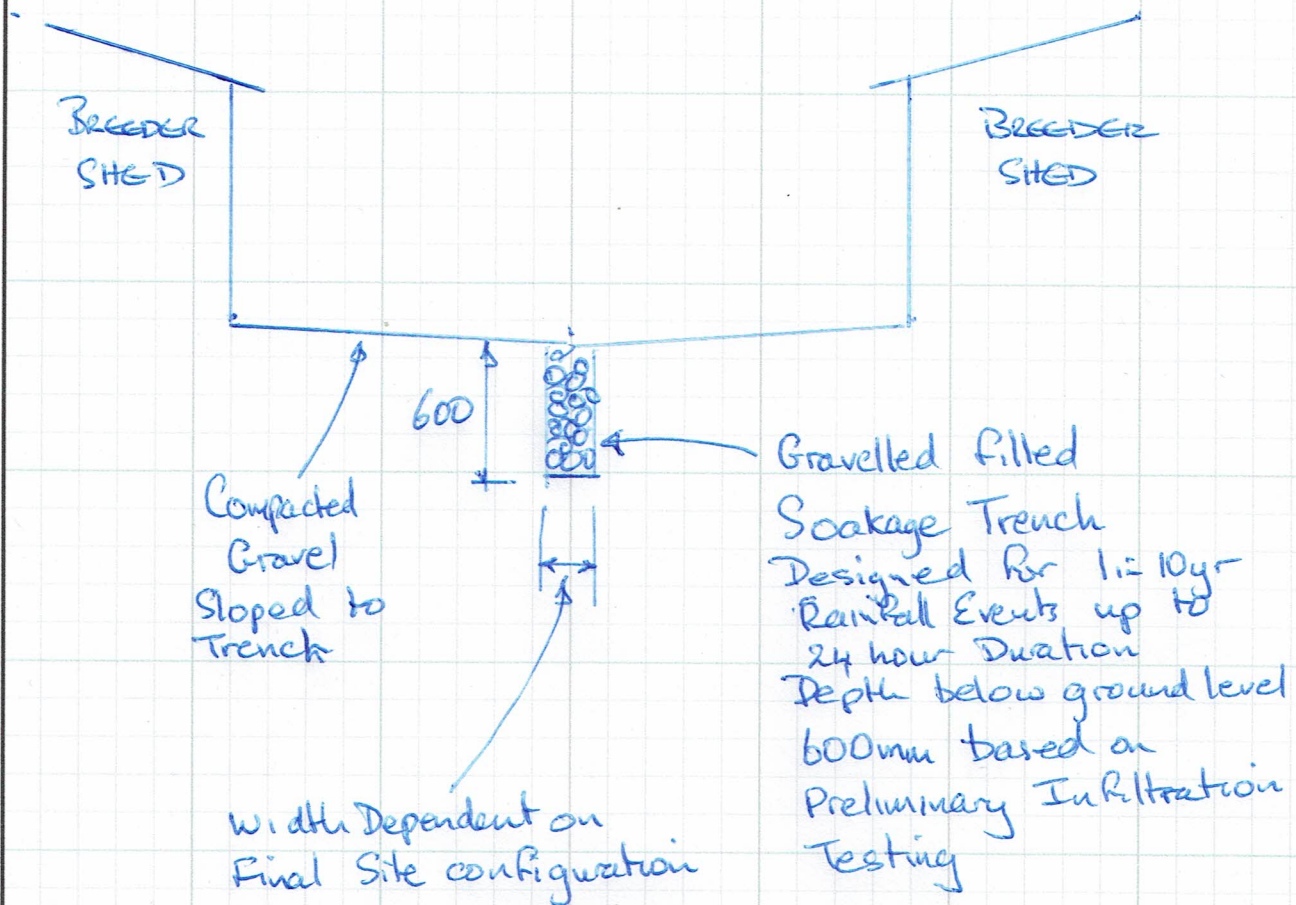 BREEDER
SHED
BREEDER
SHED
600
Compacted
Gravel
Sloped to
Trench
Gravelled filled
Soakage Trench
Designed for 1:=10yr
Rainfall Events up to
24 hour Duration
Depth below ground level
600mm based on
Preliminary Infiltration
Testing
Width Dependent on
Final Site configuration